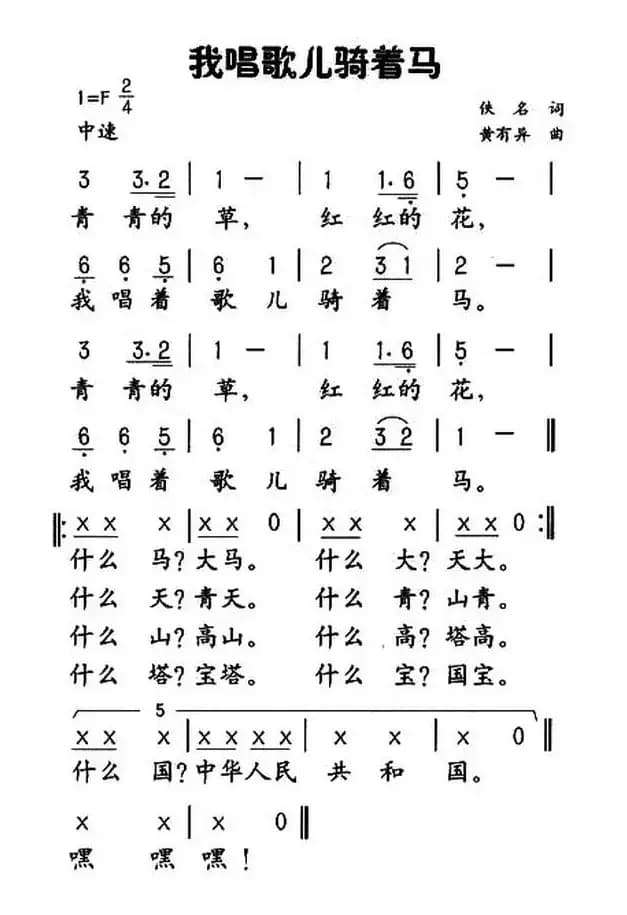 我唱歌儿骑着马
1=F 2/4
佚名 词
中速
黄有异 曲
3 3·2 | 1 — | 1 1·6 | 5 — |
青 青的 草, 红 红的 花,
6 6 5 | 6 1 | 2 3 1 | 2 — |
我唱着 歌儿 骑着 马。
3 3·2 | 1 — | 1 1·6 | 5 — |
青 青的 草, 红 红的 花,
6 6 5 | 6 1 | 2 3 2 | 1 — ‖
我唱着 歌儿 骑着 马。
‖: X X X | X X 0 | X X X | X X 0 :‖
什么 马?大马。 什么 大?天大。
什么 天?青天。 什么 青?山青。
什么 山?高山。 什么 高?塔高。
什么 塔?宝塔。 什么 宝?国宝。
5
X X X | X X X X | X X | X 0 ‖
什么 国?中华人民 共和 国。
X X | X 0 ‖
嘿 嘿 嘿!